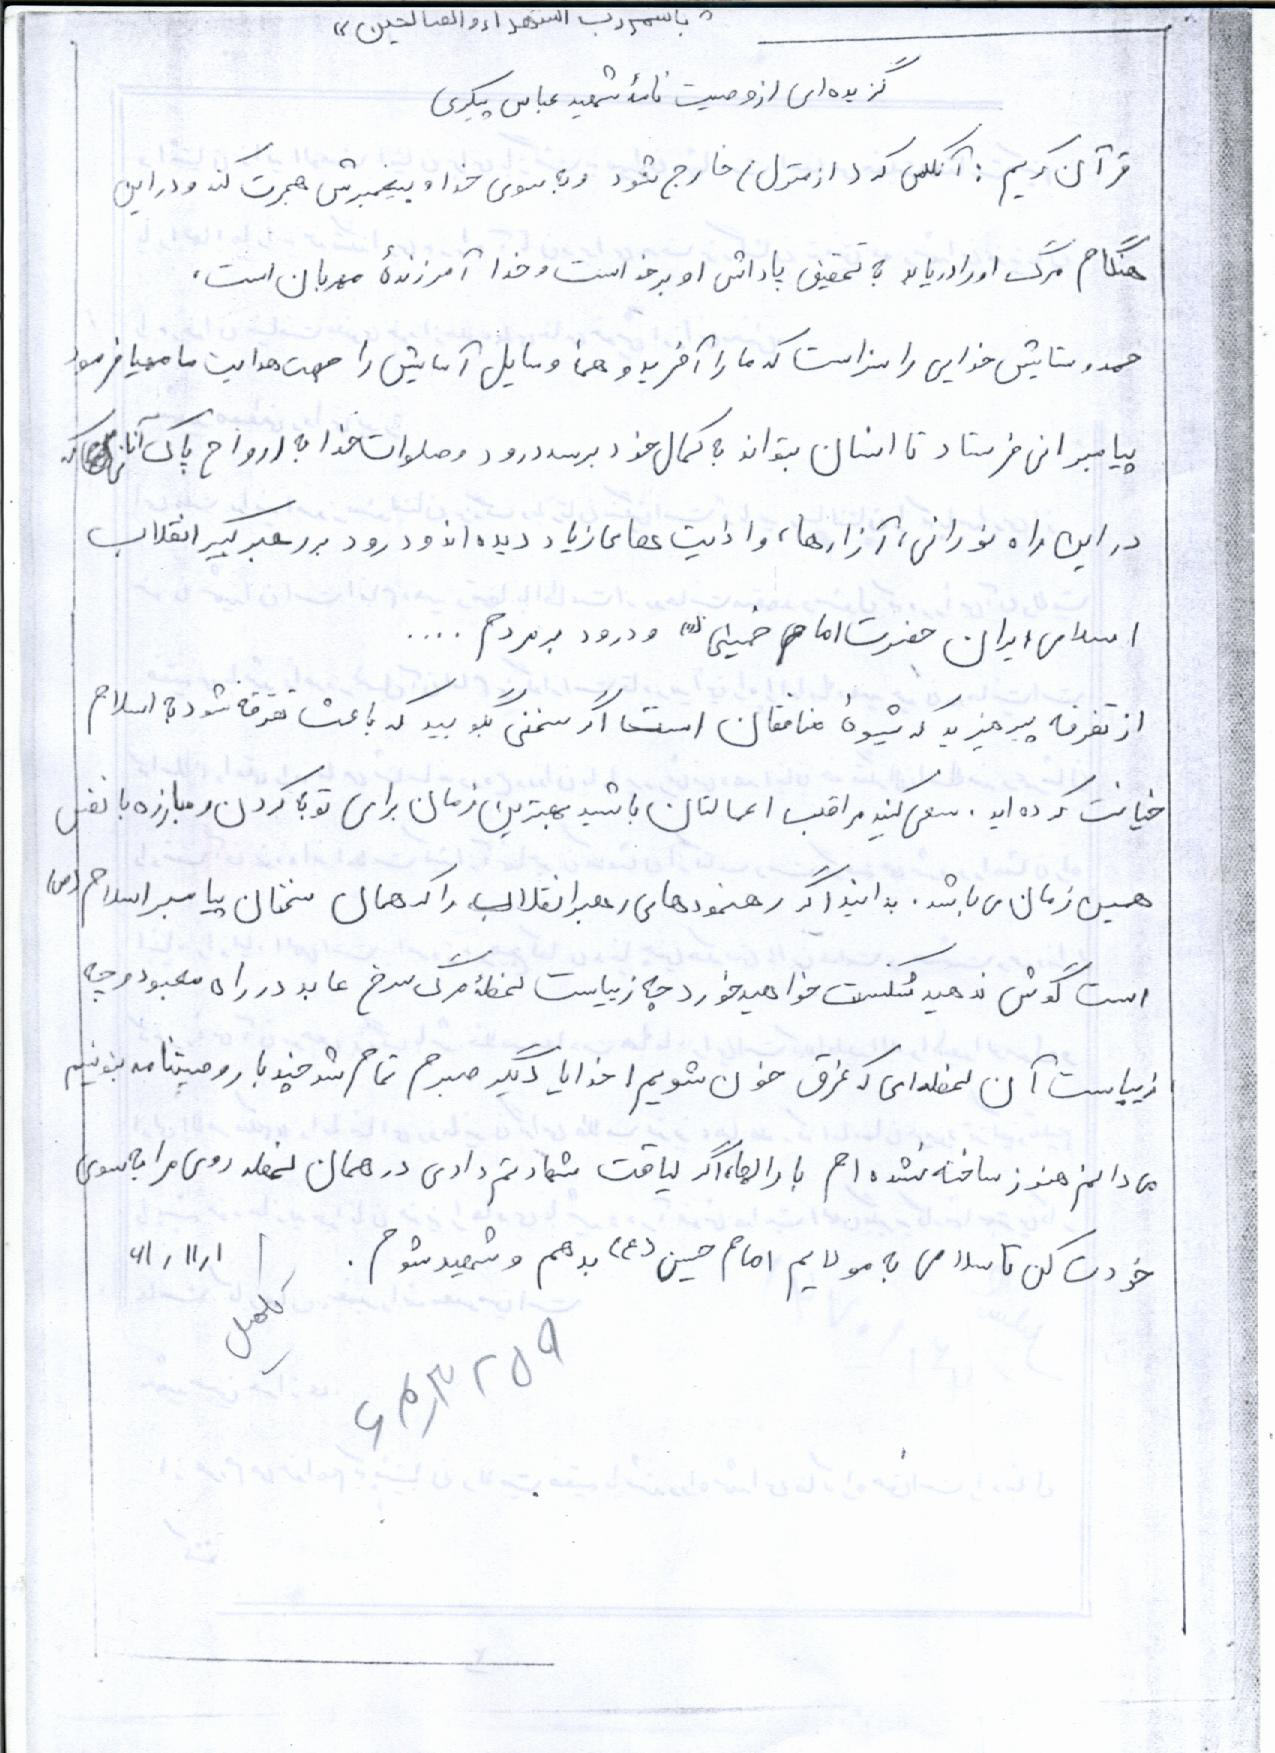 "باسمه رب الشهداء والصالحین"
گزیده‌ای از وصیت نامهٔ شهید عباس پیکری
قرآن کریم : آنکس که (از منزل) خارج شود و به سوی خدا و پیغمبرش هجرت کند و در این
هنگام مرگ او را دریابد به تحقیق پاداش او بر خداست و خدا آمرزندهٔ مهربان است.
حمد و ستایش خدایی را سزاست که ما را آفرید و همهٔ وسایل آسایش را جهت هدایت ما مهیا فرمود
پیامبرانی فرستاد تا انسان بتواند به کمال خود برسد درود و صلوات خدا به ارواح پاک آنان که
در این راه نورانی، آزارها، و اذیت های زیاد دیده اند و درود بر رهبر کبیر انقلاب
اسلامی ایران حضرت امام خمینی (ره) و درود بر مردم ....
از تفرقه بپرهیزید که شیوهٔ منافقان است اگر سخنی بگویید که باعث تفرقه شود به اسلام
خیانت کرده اید . سعی کنید مراقب اعمالتان باشید بهترین زمان برای توبه کردن و مبارزه با نفس
همین زمان می باشد . بدانید اگر رهنمودهای رهبر انقلاب را که همان سخنان پیامبر اسلام (ص)
است گوش ندهید شکست خواهید خورد چه زیباست لحظهٔ مرگ سرخ عابد در راه معبود و چه
زیباست آن لحظه‌ای که غرق خون شویم ! خدایا دیگر صبرم تمام شد چند بار وصیتنامه بنویسم
می دانم هنوز ساخته نشده ام بارالها، اگر لیاقت شهادتم دادی در همان لحظه روی مرا به سوی
خودت کن تا سلامی به مولایم امام حسین (ع) بدهم و شهید شوم . ۶۱/۱۱/۱